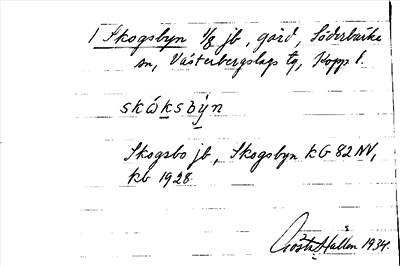 1 Skogsbyn 1/2 jb, gård, Söderbärke
sn, Västerbergslags tg, Kopp l.
skåksbỳn
Skogsbo jb, Skogsbyn KG 82 NV,
kb 1928
Gösta Hallén 1934.